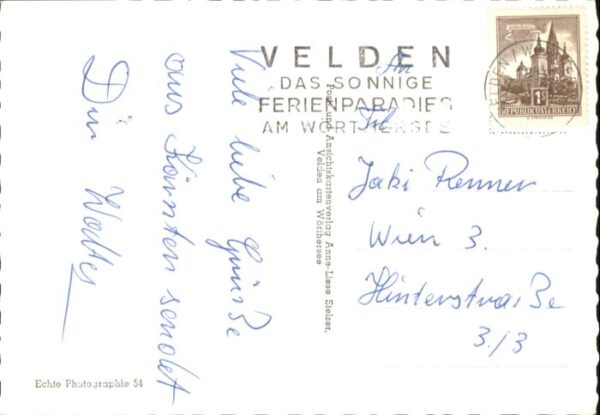 VELDEN
DAS SONNIGE
FERIENPARADIES
AM WÖRTHERSEE
1S
REPUBLIK ÖSTERREICH
VELDEN
An
Frl.
Jaki Renner
Wien 3.
Hinterstraße
3./3
Viele liebe Grüße
aus Kärnten sendet
Dir
Post- und Ansichtskartenverlag Anne-Liese Stelzer,
Velden am Wörthersee
Echte Photographie 54